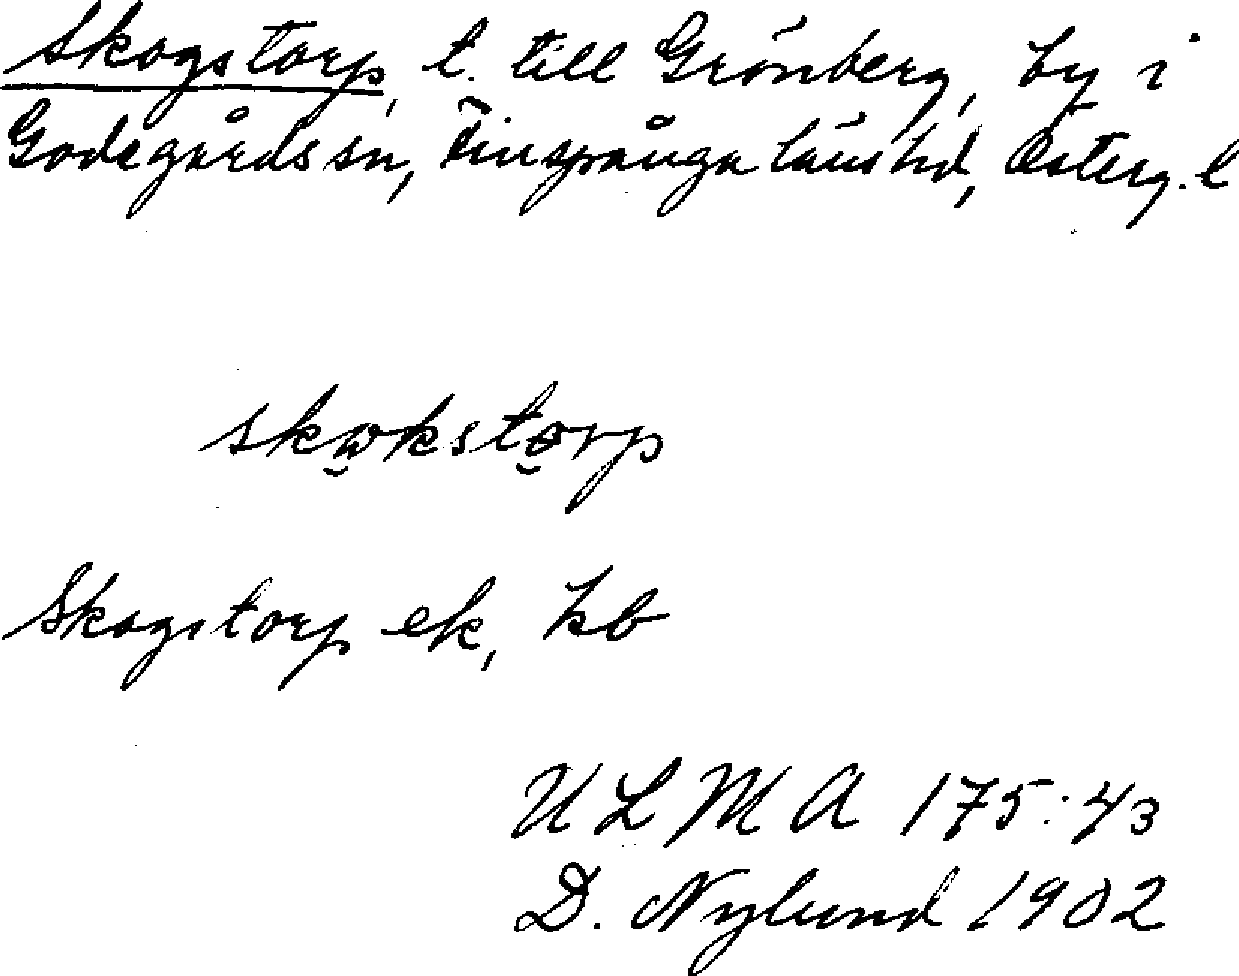 Skogstorp, t. till Grönberg, by i
Godegårds sn, Finspånga läns hd, Österg. l
skωkstorp
Skogstorp ek, kb
ULMA 175:43
D. Nylund 1902